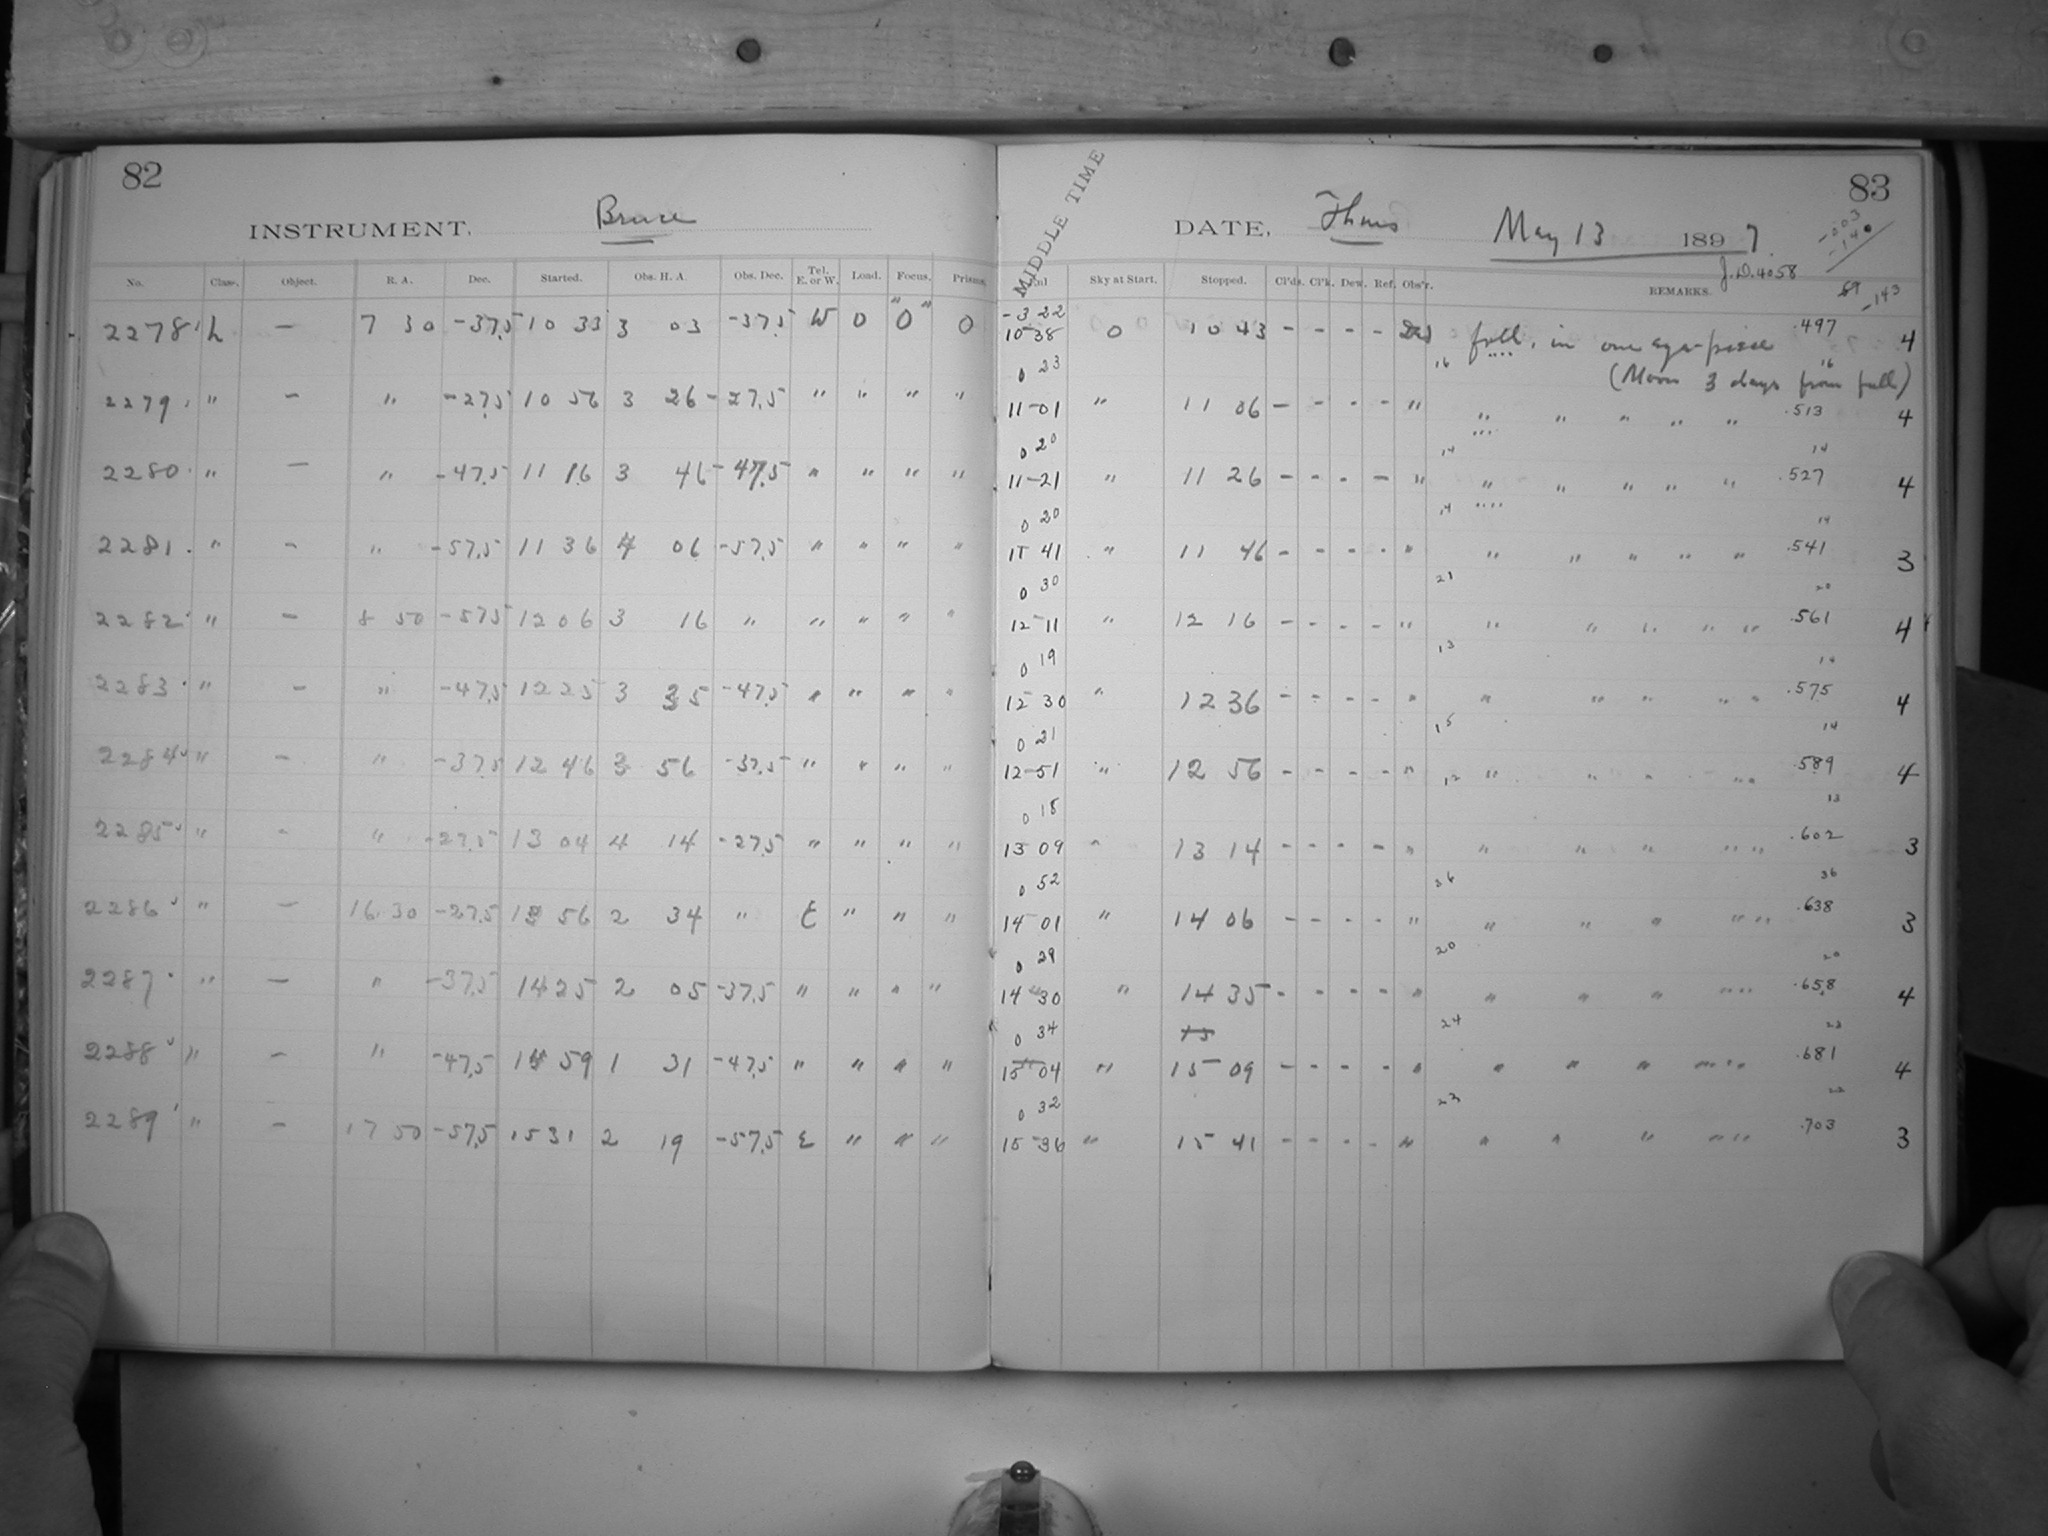 82
INSTRUMENT, Bruce
No. Class. Object. R. A. Dec. Started. Obs. H. A. Obs. Dec. Tel. E. or W. Load. Focus. Prisms.
2278 L — 7 30 -37.5 10 33 3 03 -37.5 W 0 0 0
2279 " — " -27.5 10 56 3 26 -27.5 " " " "
2280 " — " -47.5 11 16 3 46 -47.5 " " " "
2281 " — " -57.5 11 36 4 06 -57.5 " " " "
2282 " — 8 50 -57.5 12 06 3 16 " " " " "
2283 " — " -47.5 12 25 3 35 -47.5 " " " "
2284 " — " -37.5 12 46 3 56 -37.5 " " " "
2285 " — " -27.5 13 04 4 14 -27.5 " " " "
2286 " — 16 30 -27.5 13 56 2 34 " E " " "
2287 " — " -37.5 14 25 2 05 -37.5 " " " "
2288 " — " -47.5 14 59 1 31 -47.5 " " " "
2289 " — 17 50 -57.5 15 31 2 19 -57.5 E " " "
83
MIDDLE TIME
DATE, Thurs May 13 1897.
J.D. 4058
-143
Sky at Start. Stopped. Cl'ds. Cl'k. Dew. Ref. Obs'r. REMARKS.
-3 22
10 38 0 10 43 - - - - foll. in one eye-piece .497 4
0 23 16 (Moon 3 days from full) 16
11-01 " 11 06 - - - - " " " " " " .513 4
0 20 14 14
11-21 " 11 26 - - - - " " " " " " .527 4
0 20 14 14
11 41 " 11 46 - - - - " " " " " " .541 3
0 30 21 20
12-11 " 12 16 - - - - " " " " " " .561 4
0 19 13 14
12 30 " 12 36 - - - - " " " " " " .575 4
0 21 15 14
12-51 " 12 56 - - - - " " " " " " .589 4
0 18 12 13
13 09 " 13 14 - - - - " " " " " " .602 3
0 52 36 36
14 01 " 14 06 - - - - " " " " " " .638 3
0 29 20 20
14 30 " 14 35 - - - - " " " " " " .658 4
0 34 24 23
15 04 " 15 09 - - - - " " " " " " .681 4
0 32 22 22
15-36 " 15 41 - - - - " " " " " " .703 3